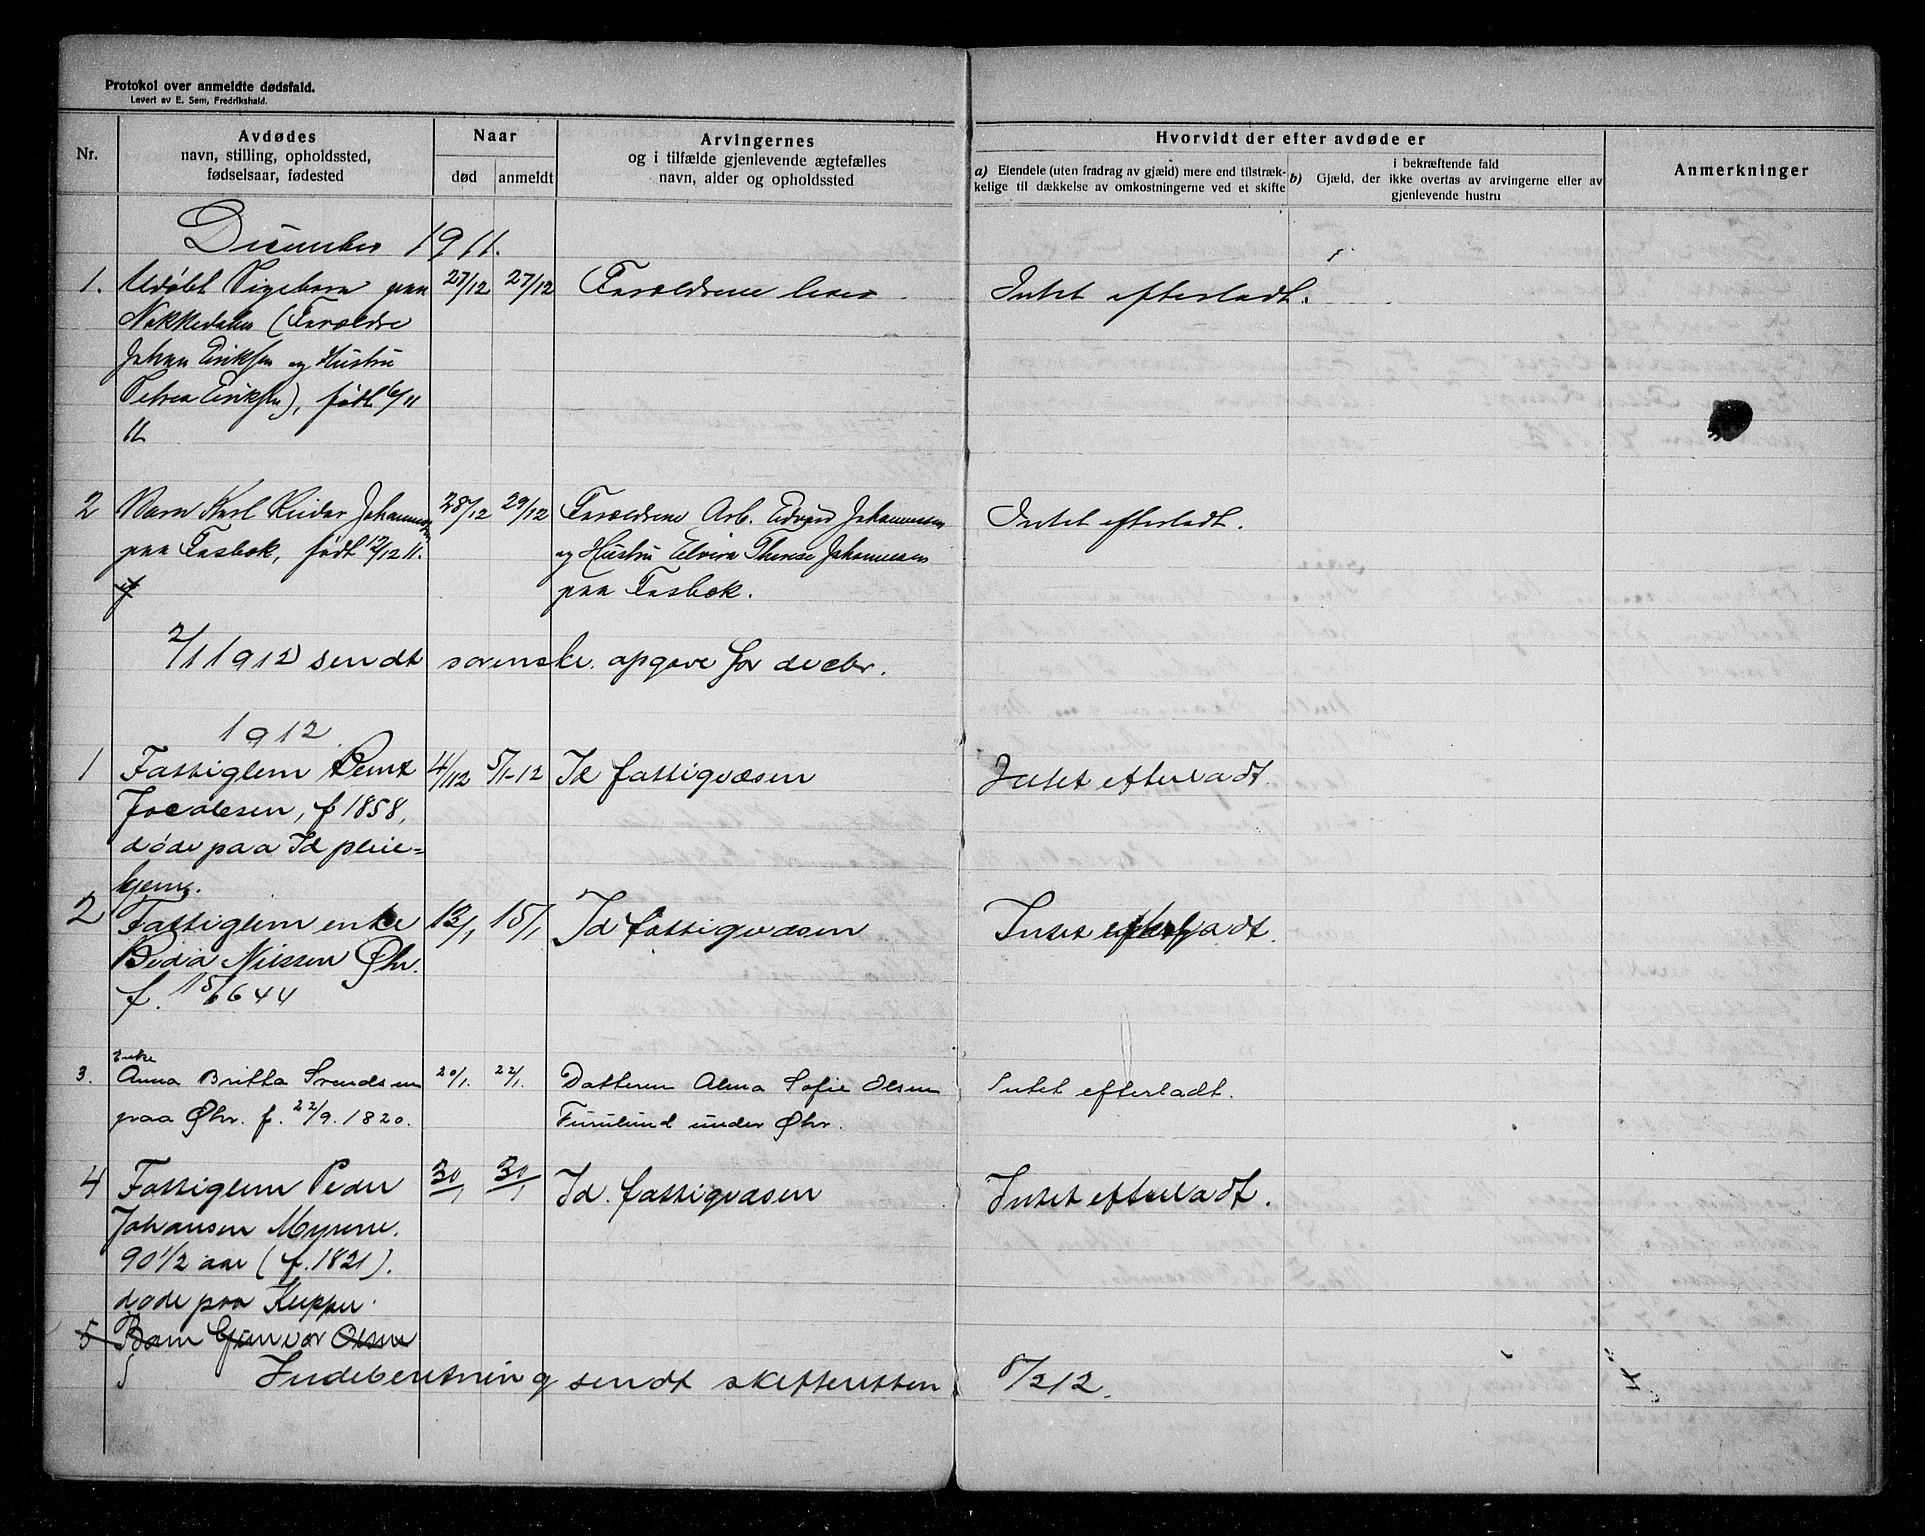 Protokol over anmeldte dødsfald.
Levert av E. Sem, Fredrikshald.
Nr.
Avdødes
navn, stilling, opholdssted,
fødselsaar, fødested
Naar
død
anmeldt
Arvingernes
og i tilfælde gjenlevende ægtefælles
navn, alder og opholdssted
Hvorvidt der efter avdøde er
a) Eiendele (uten fradrag av gjæld) mere end tilstræk-
kelige til dækkelse av omkostningerne ved et skifte
i bekræftende fald
b) Gjæld, der ikke overtas av arvingerne eller av
gjenlevende hustru
Anmerkninger
December 1911.
1. Udøbt Pigebarn paa 27/12 27/12 Forældrene lever. Intet efterladt.
Nokkedalen (Forældre
Johan Eriksen og Hustru
Petrea Eriksen), født 6/11
11.
2 Barn Karl Reidar Johannesen 28/12 29/12 Forældrene Arb. Edvard Johannesen Intet efterladt.
paa Fasbok, født 12/12 11. og Hustru Elvira Therese Johannesen
paa Fasbok.
2/1 1912 sendt sorenskr. opgave for decbr.
1912.
1 Fattiglem Bernt 4/1 12 5/1-12 Id fattigvæsen Intet efterladt.
Jocobsen, f 1858,
døde paa Id pleie-
hjem.
2 Fattiglem enke 13/1 15/1 Id fattigvæsen Intet efterladt.
Beda Nilssen Øhr.
f. 15/6 44
3. Enke
Anna Britta Svendsen 20/1. 22/1. Datteren Alma Sofie Olsen Intet efterladt.
paa Øhr. f. 22/9. 1820. Furulund under Øhr.
4 Fattiglem Peder 30/1 30/1 Id. fattigvæsen Intet efterladt.
Johansen Myrene.
90 1/2 aar (f. 1821).
døde paa
5 Barn Gunvor Olsen
Indberetning sendt skifteretten 8/2 12.